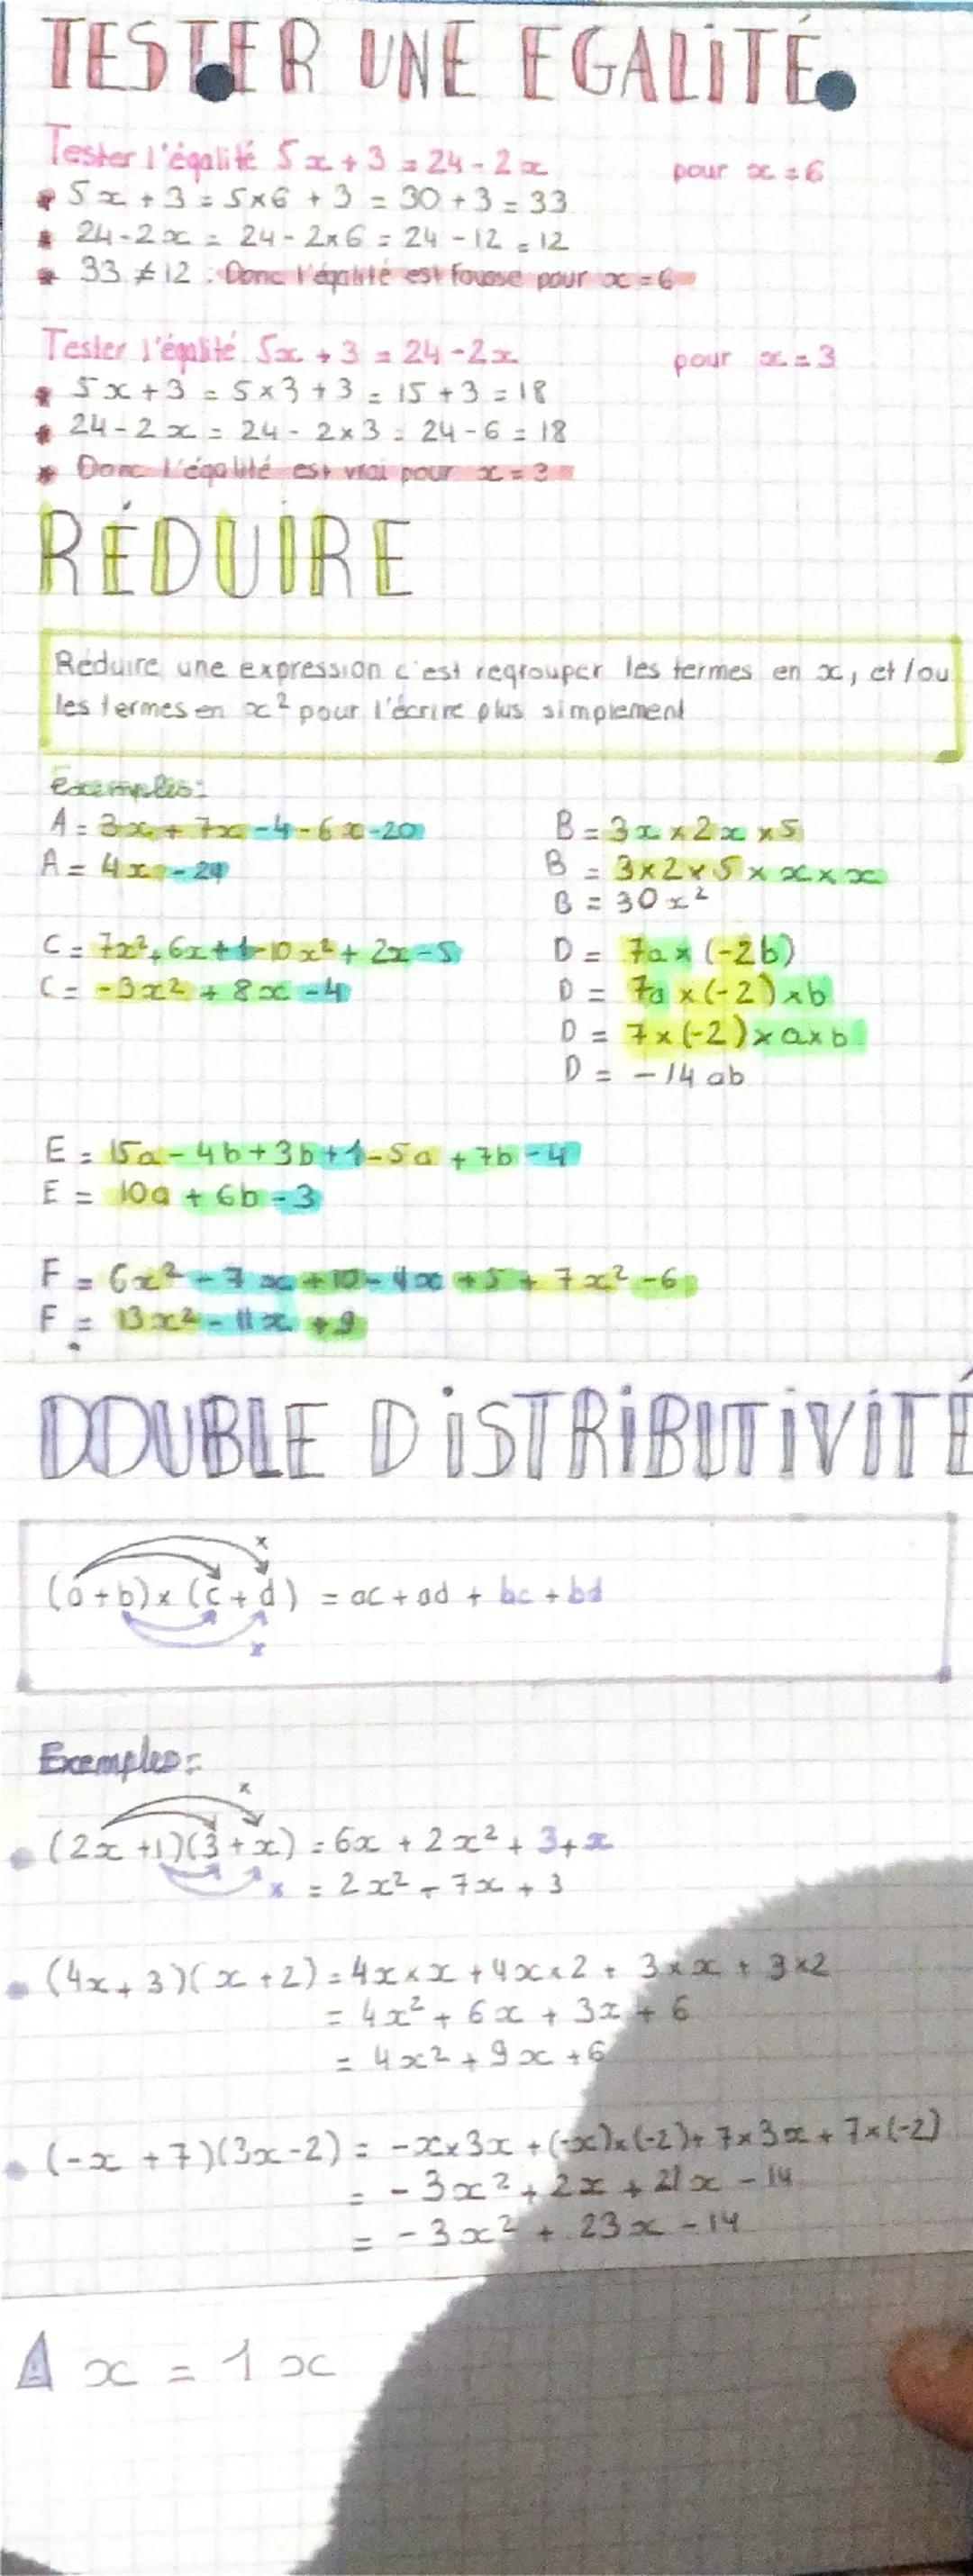 TESTER UNE EGALITÉ
Tester l'égalité 5x + 3 = 24 - 2x pour x = 6
5x + 3 = 5×6 + 3 = 30 + 3 = 33
24 - 2x = 24 - 2×6 = 24 - 12 = 12
33 ≠ 12. Donc l'égalité est fausse pour x = 6
Tester l'égalité 5x + 3 = 24 - 2x pour x = 3
5x + 3 = 5×3 + 3 = 15 + 3 = 18
24 - 2x = 24 - 2×3 = 24 - 6 = 18
Donc l'égalité est vrai pour x = 3
RÉDUIRE
Réduire une expression c'est regrouper les termes en x, et/ou
les termes en x² pour l'écrire plus simplement
Exemples:
A = 3x + 7x - 4 - 6x - 20 B = 3x × 2x × 5
A = 4x - 24 B = 3×2×5 × x × x
B = 30x²
C = 7x² + 6x + 1 - 10x² + 2x - 5 D = 7a × (-2b)
C = -3x² + 8x - 4 D = 7a × (-2) × b
D = 7 × (-2) × a × b
D = -14ab
E = 15a - 4b + 3b + 1 - 5a + 7b - 4
E = 10a + 6b - 3
F = 6x² - 7x + 10 - 4x + 5 + 7x² - 6
F = 13x² - 11x + 9
DOUBLE DISTRIBUTIVITÉ
x
(a + b) × (c + d) = ac + ad + bc + bd
x
Exemples:
x
(2x + 1)(3 + x) = 6x + 2x² + 3 + x
x = 2x² + 7x + 3
(4x + 3)(x + 2) = 4x × x + 4x × 2 + 3 × x + 3×2
= 4x² + 6x + 3x + 6
= 4x² + 9x + 6
(-x + 7)(3x - 2) = -x × 3x + (-x) × (-2) + 7 × 3x + 7 × (-2)
= -3x² + 2x + 21x - 14
= -3x² + 23x - 14
x = 1x